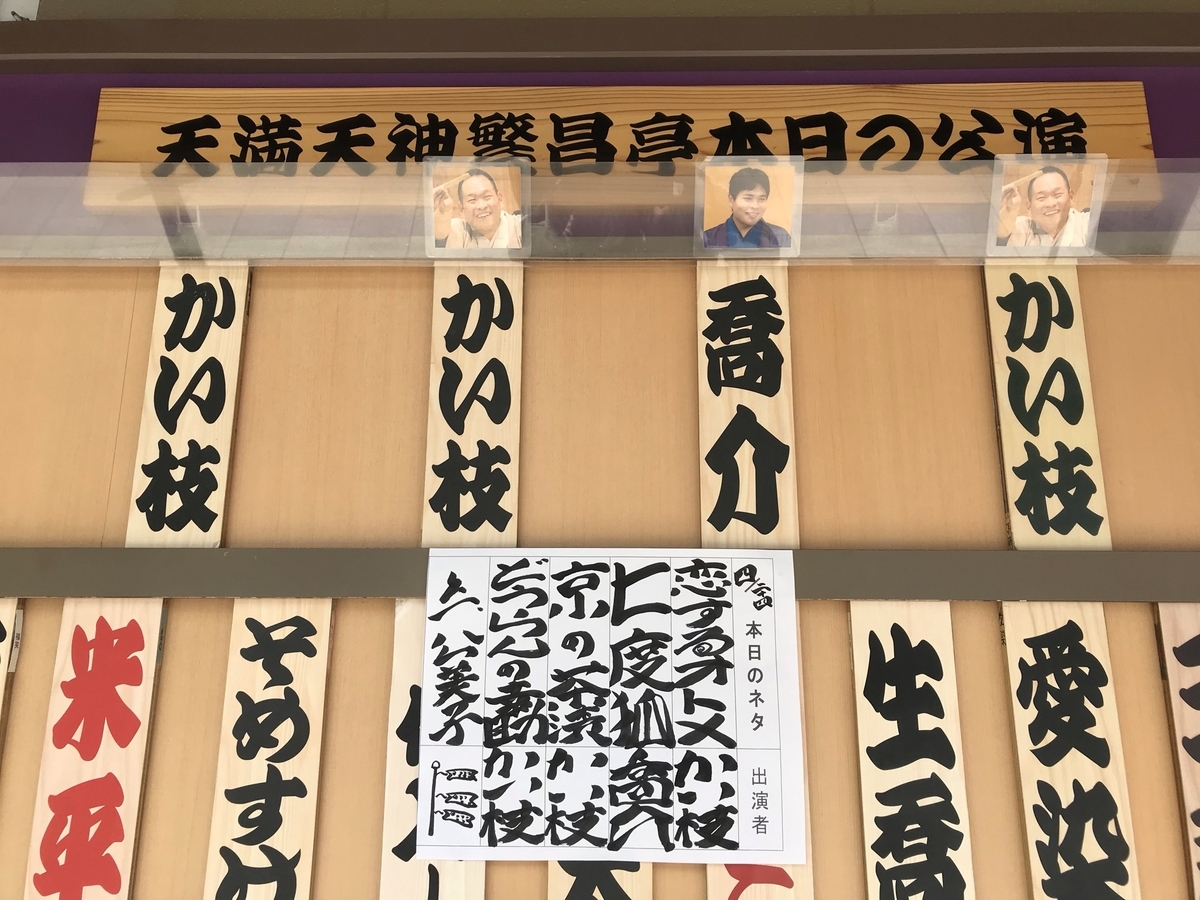 天満天神繁昌亭本日の公演
かい枝
喬介
かい枝
かい枝
本日のネタ
出演者
恋するオトメ
かい枝
七度狐
喬介
京の茶漬
かい枝
かい枝
公美子
愛染
生喬
そめすけ
米平